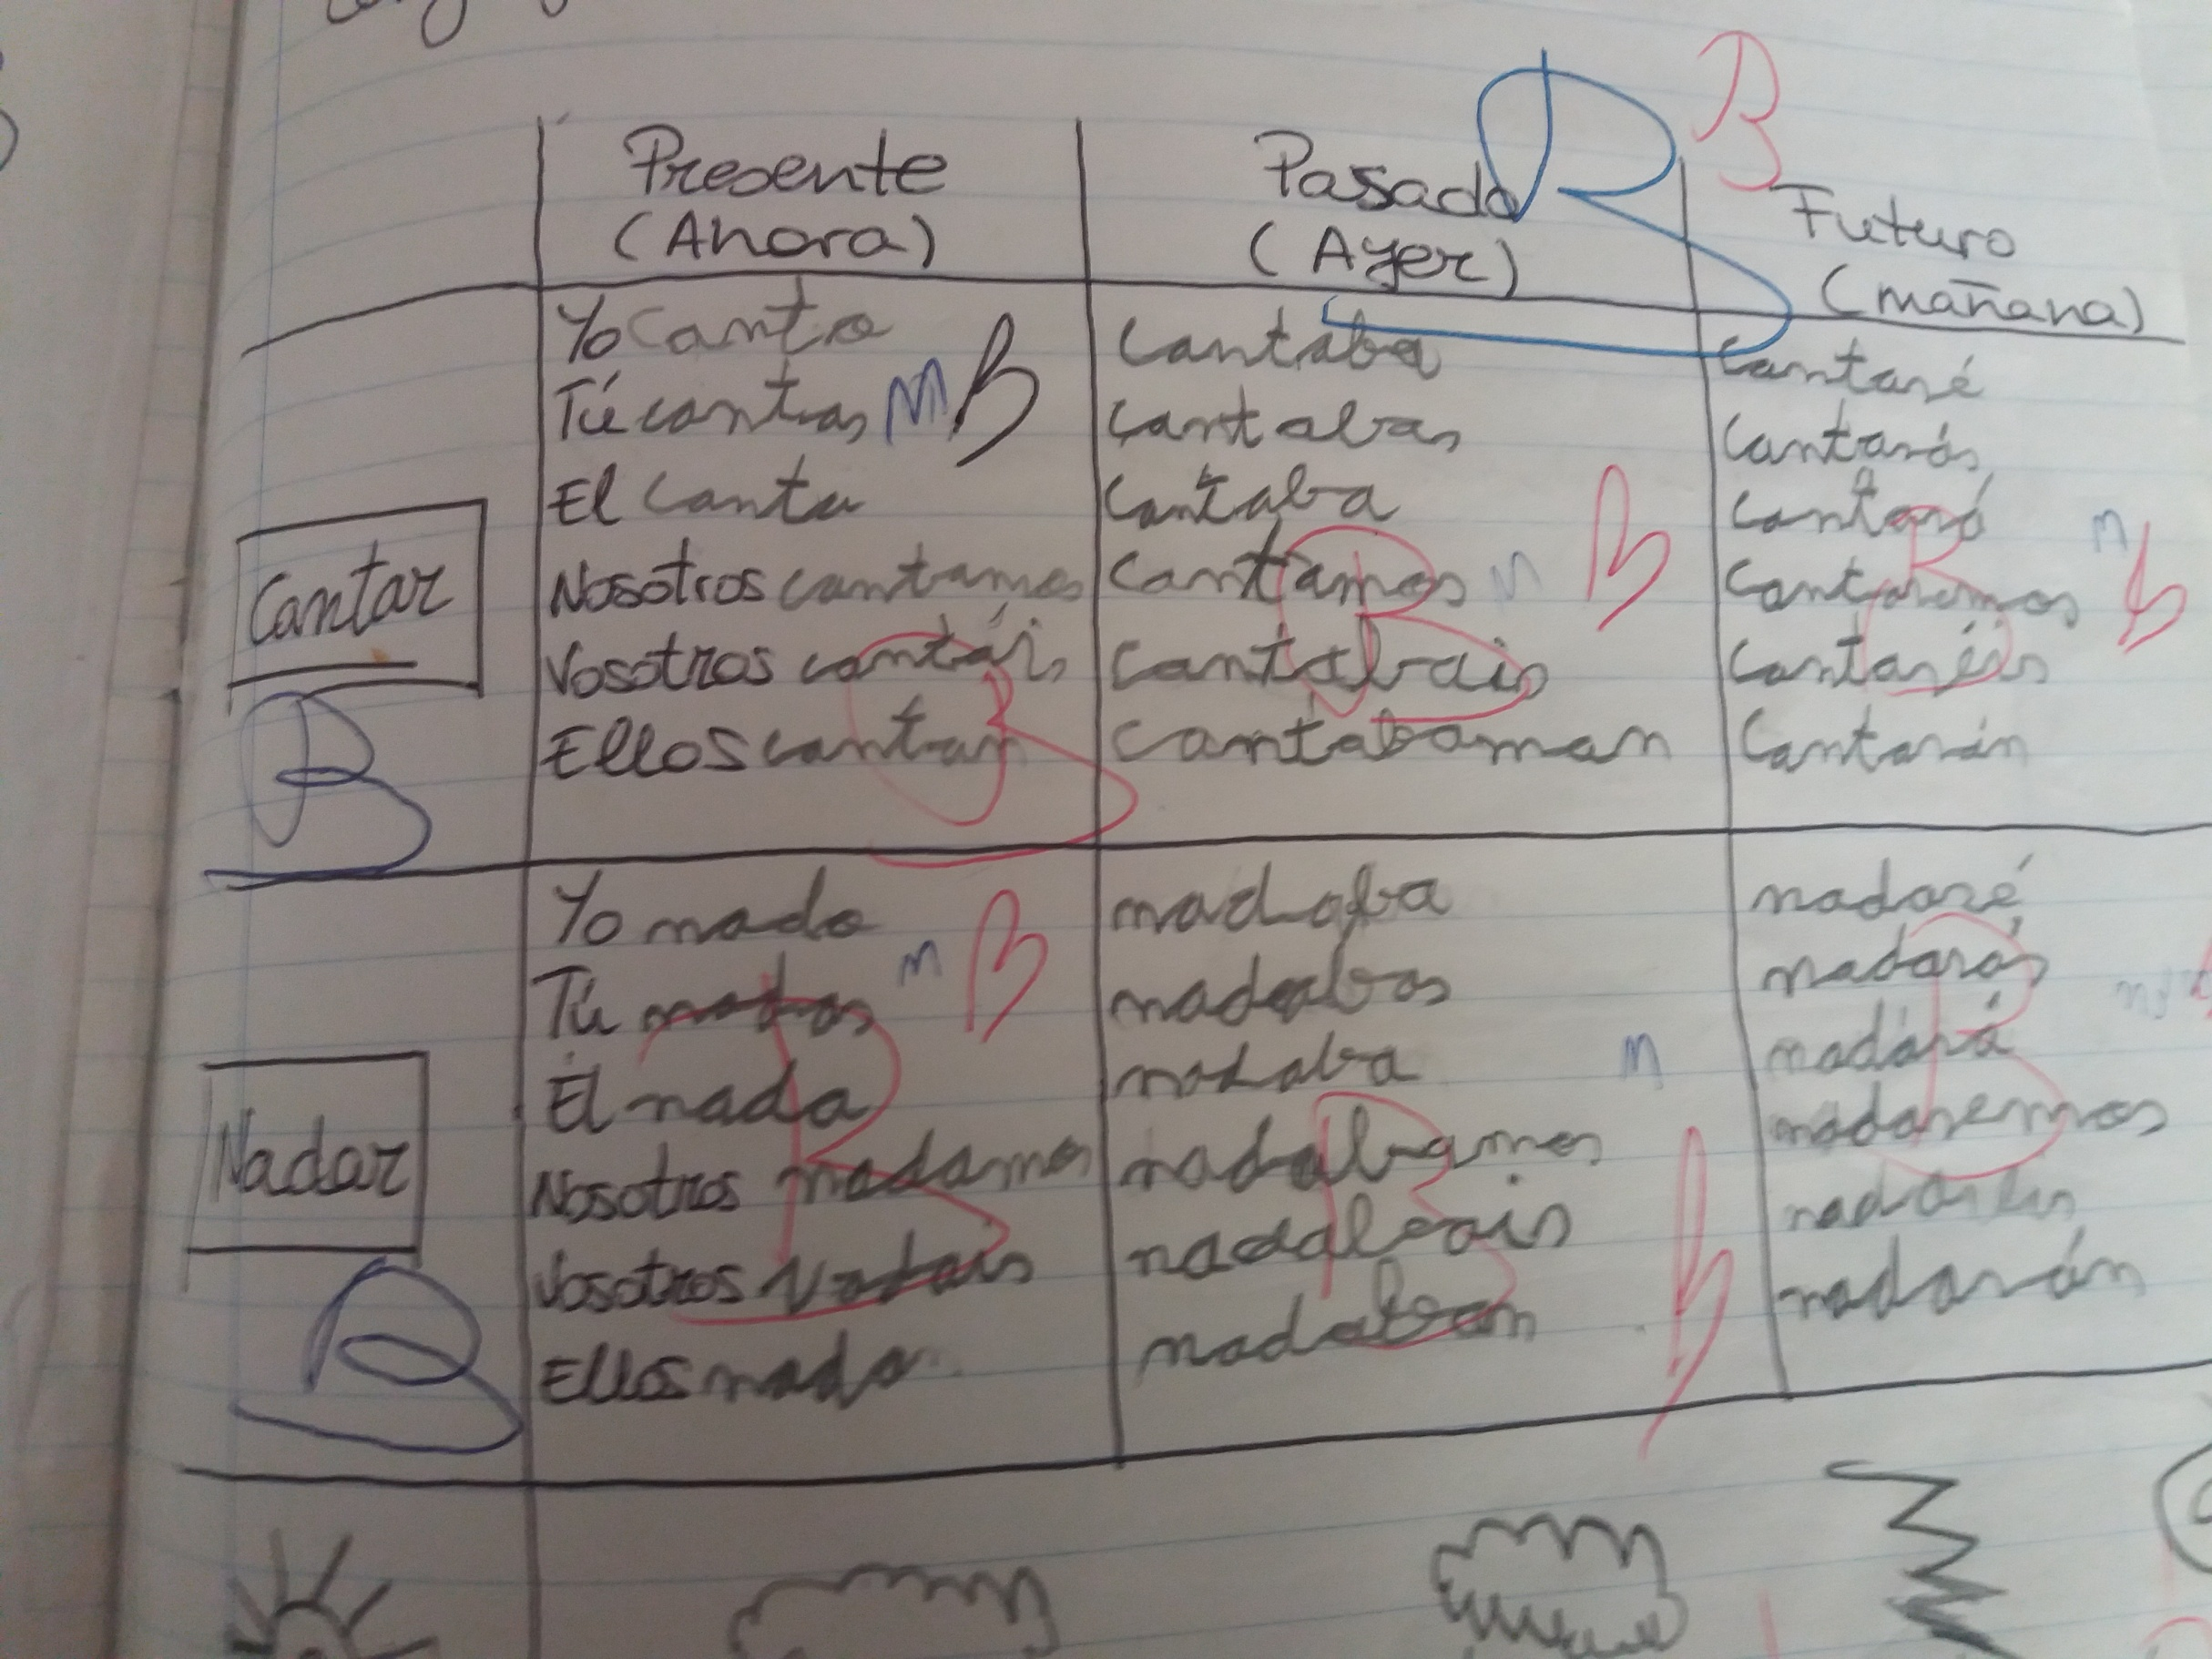 Presente
(Ahora)
Pasado
(Ayer)
Futuro
(mañana)
B
Cantar
B
Yo canto
Tú cantas MB
El canta
Nosotros cantamos
Vosotros cantáis
Ellos cantan
cantaba
cantabas
cantaba
cantamos
cantabais
cantabaman
cantaré
cantarás
cantará
cantaremos
cantaréis
cantarán
Nadar
B
Yo nado
Tú nadas
Él nada
Nosotros nadamos
Vosotros nadais
Ellos nada
nadaba
nadabas
nadaba
nadabamos
nadabais
nadaban
nadaré
nadarás
nadará
nadaremos
nadarán